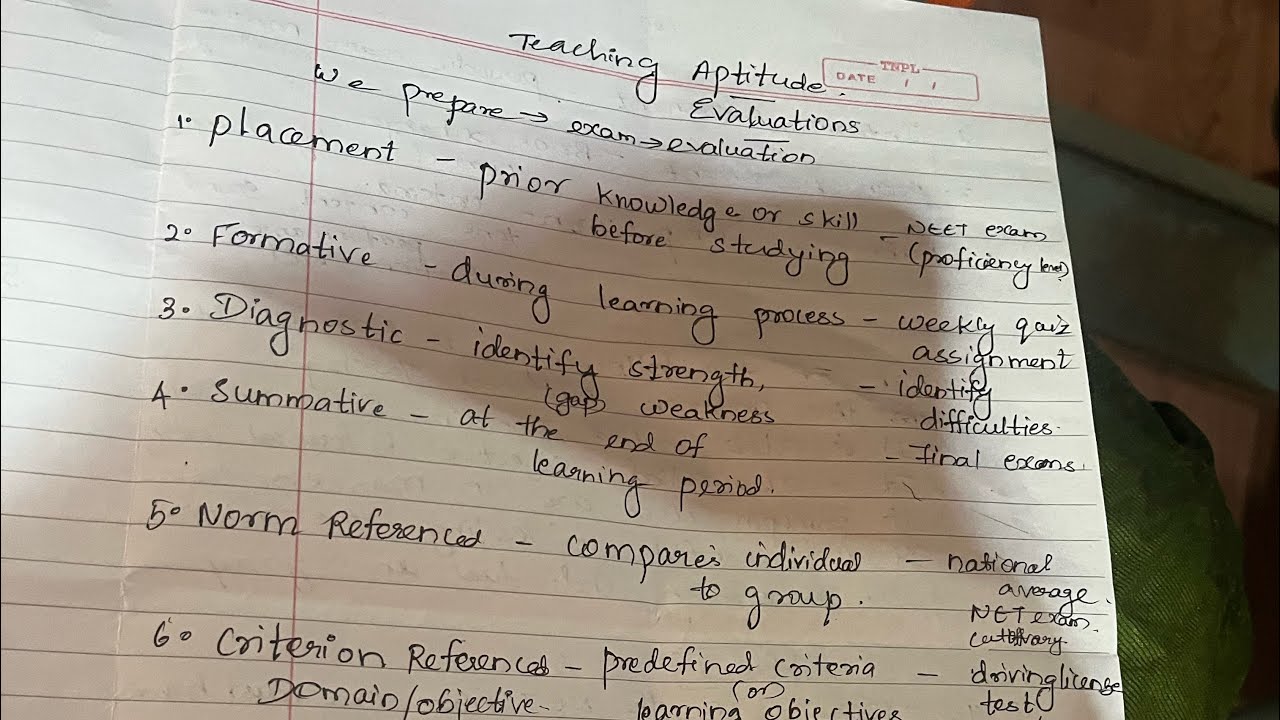 Teaching Aptitude.
TNPL
DATE / /
Evaluations
We prepare → exam → evaluation
1. Placement - prior knowledge or skill - NEET exam
before studying (proficiency level)
2. Formative - during learning process - weekly quiz
assignment
3. Diagnostic - identify strength, - identify
(gap) weakness difficulties.
4. Summative - at the end of - final exams.
learning period.
5. Norm Referenced - compares individual - national
to group. average.
NET exam.
6. Criterion Referenced - predefined criteria - driving license
(or) test
Domain/objective - learning objectives